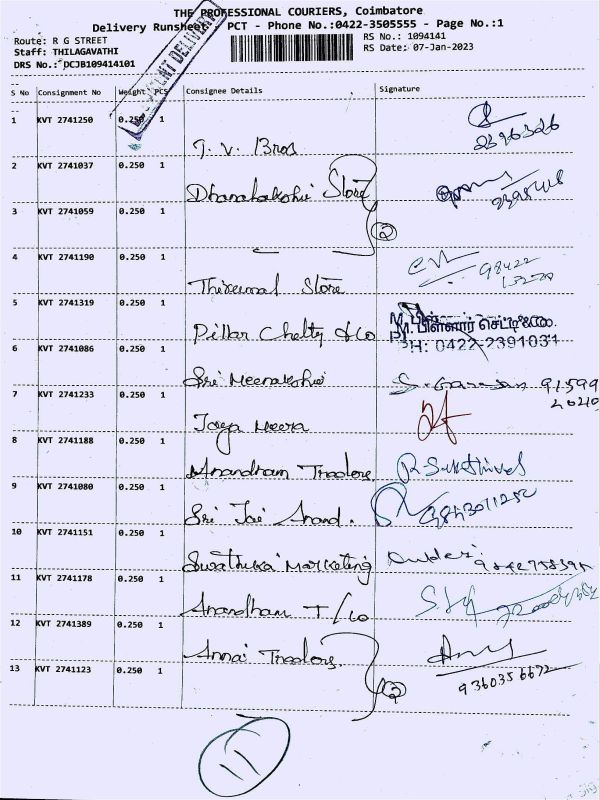 THE PROFESSIONAL COURIERS, Coimbatore
Delivery Runsheet PCT - Phone No.:0422-3505555 - Page No.:1
Route: R G STREET
RS No.: 1094141
Staff: THILAGAVATHI
RS Date: 07-Jan-2023
DRS No.: PCJB109414101
S No Consignment No Weight PCS Consignee Details Signature
1 KVT 2741250 0.250 1
T. V. Bros
2 KVT 2741037 0.250 1
Store
3 KVT 2741059 0.250 1
2
4 KVT 2741190 0.250 1
Store
98422
5 KVT 2741319 0.250 1
Pillar Chetty & Co
M. பிள்ளார் செட்டி &கோ.
PH: 0422-2391031
6 KVT 2741086 0.250 1
Sri Meenakshi
91599
7 KVT 2741233 0.250 1
Jaya Meera
8 KVT 2741188 0.250 1
Anandham Traders
R. Sakthivel
9 KVT 2741080 0.250 1
Sri Jai Anand.
10 KVT 2741151 0.250 1
Swathika Marketing
11 KVT 2741178 0.250 1
Anandham T/Co
12 KVT 2741389 0.250 1
Annai Traders
13 KVT 2741123 0.250 1
2
9360356672
11